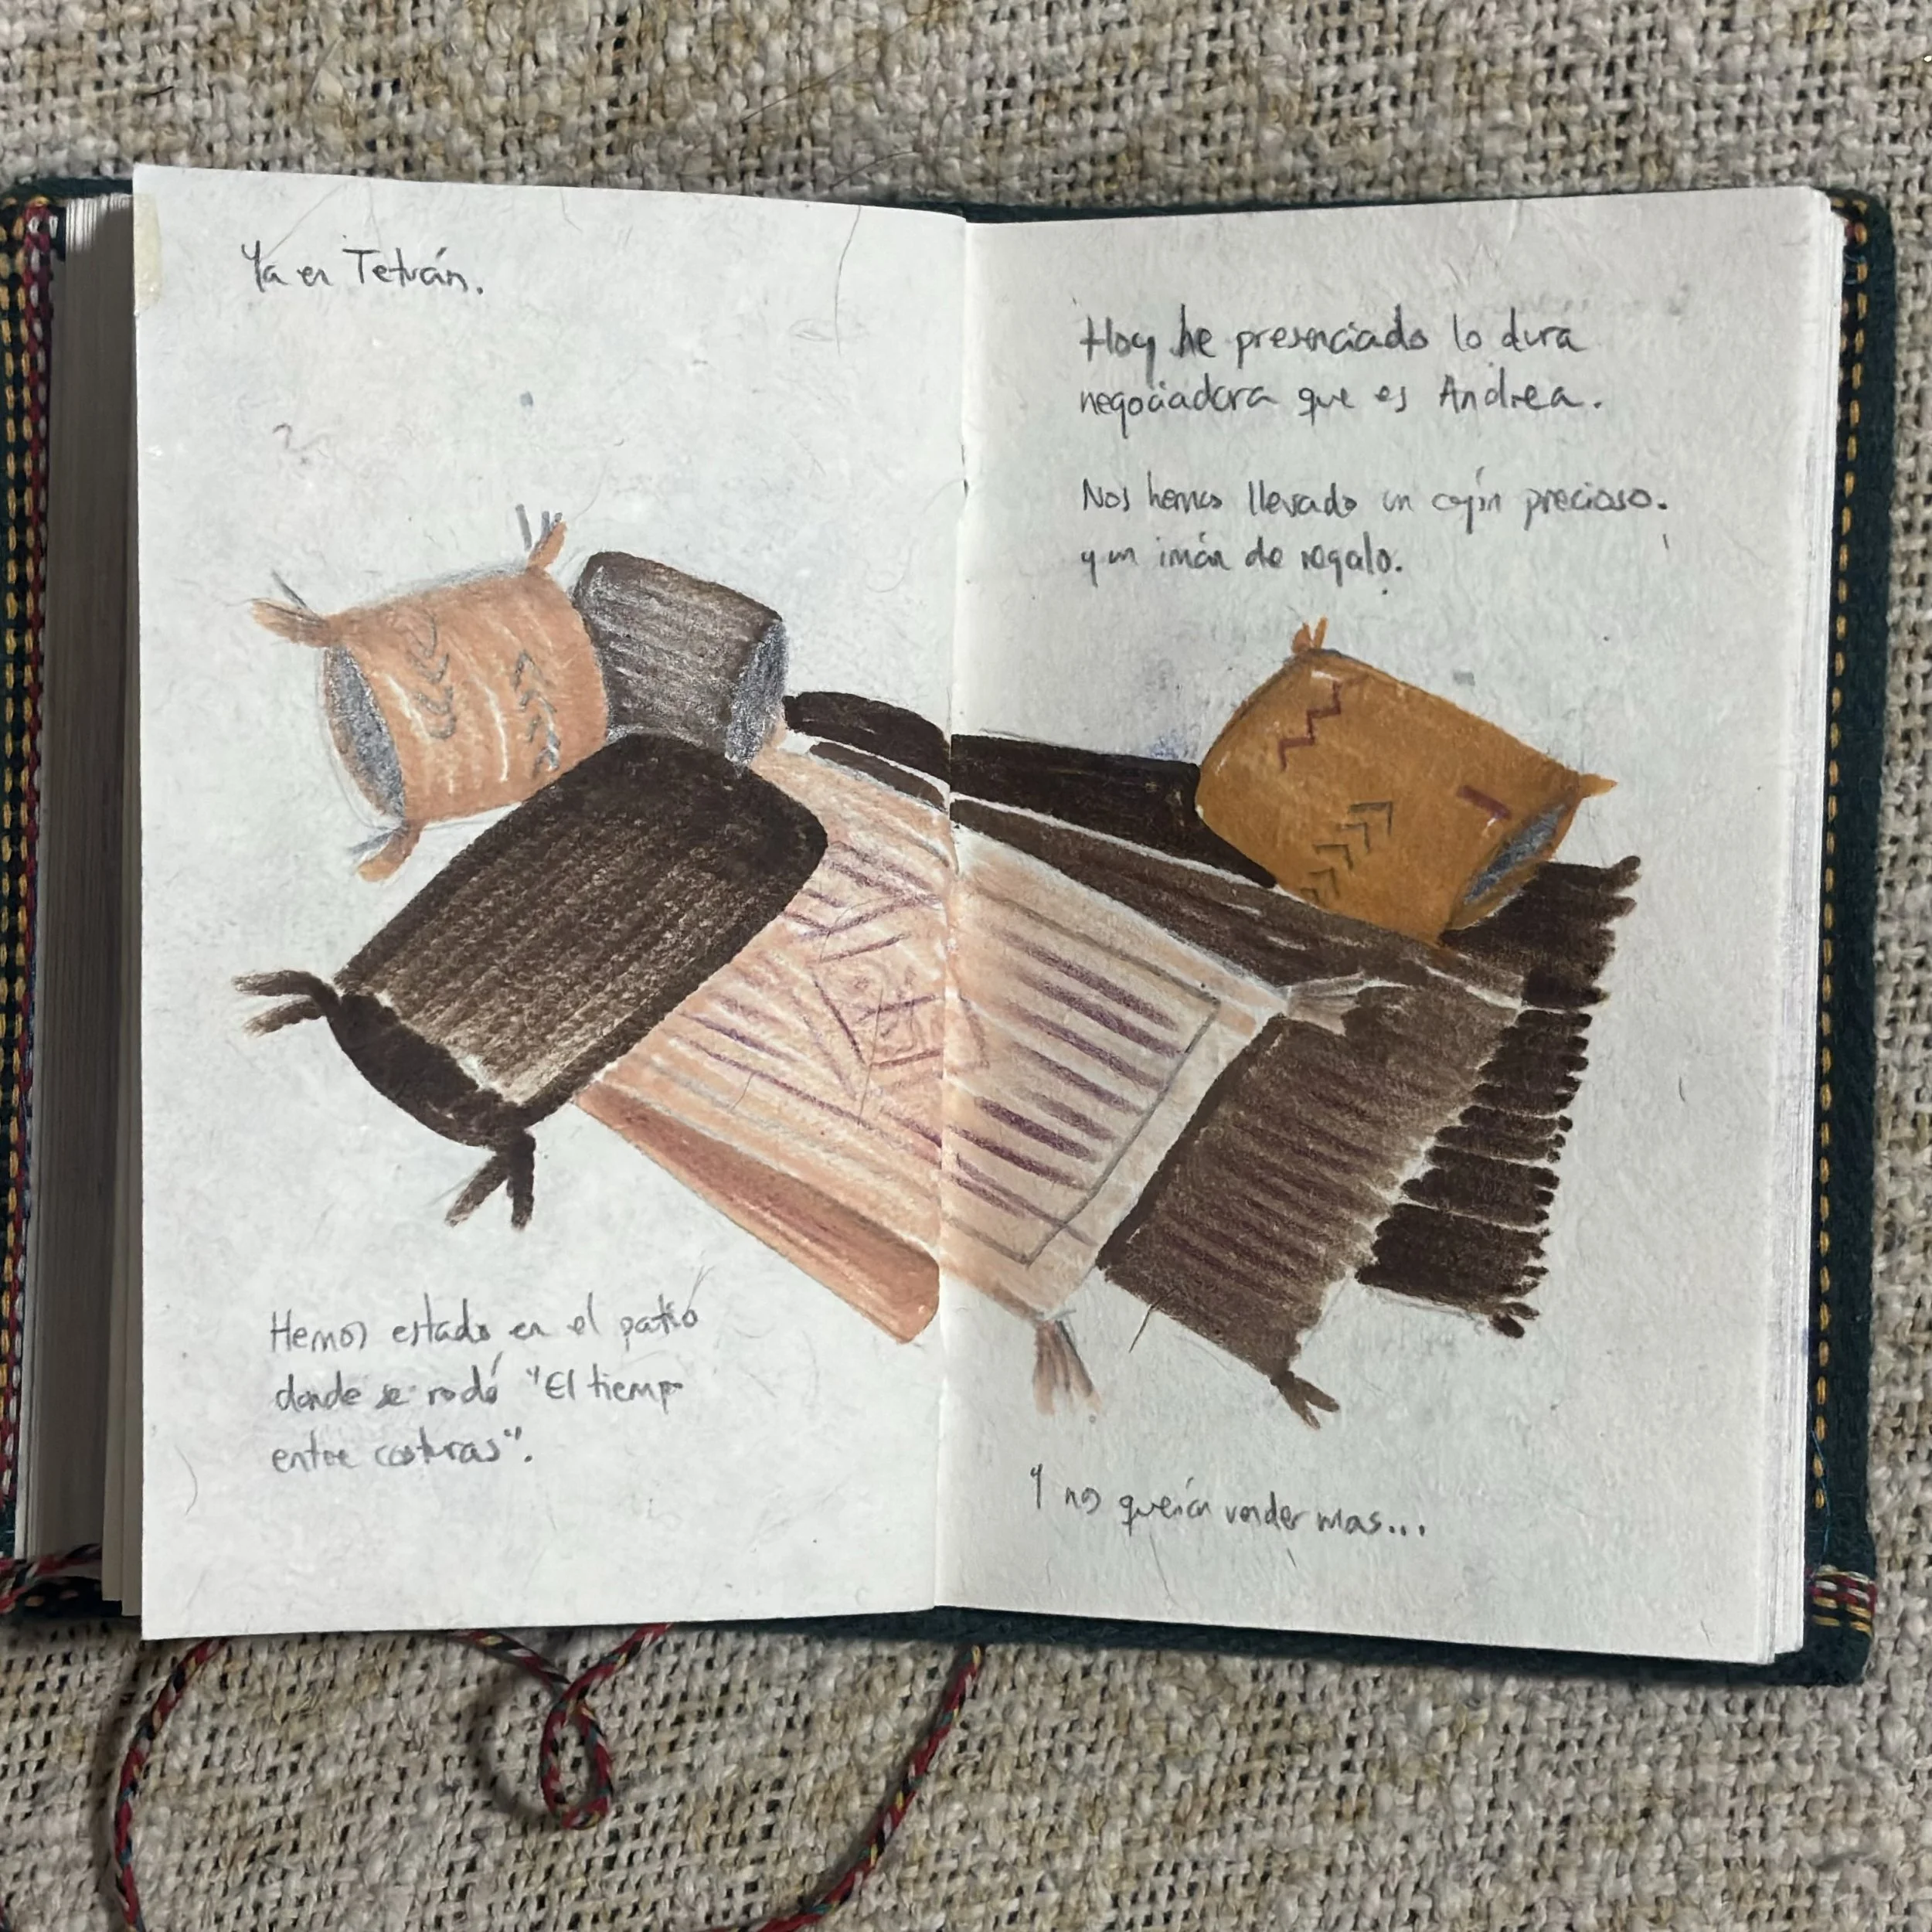 Ya en Tetuán.
Hemos estado en el patio
donde se rodó "El tiempo
entre costuras".
Hoy he presenciado lo dura
negociadora que es Andrea.
Nos hemos llevado un cojín precioso.
y un imán de regalo.
Y nos querían vender mas...